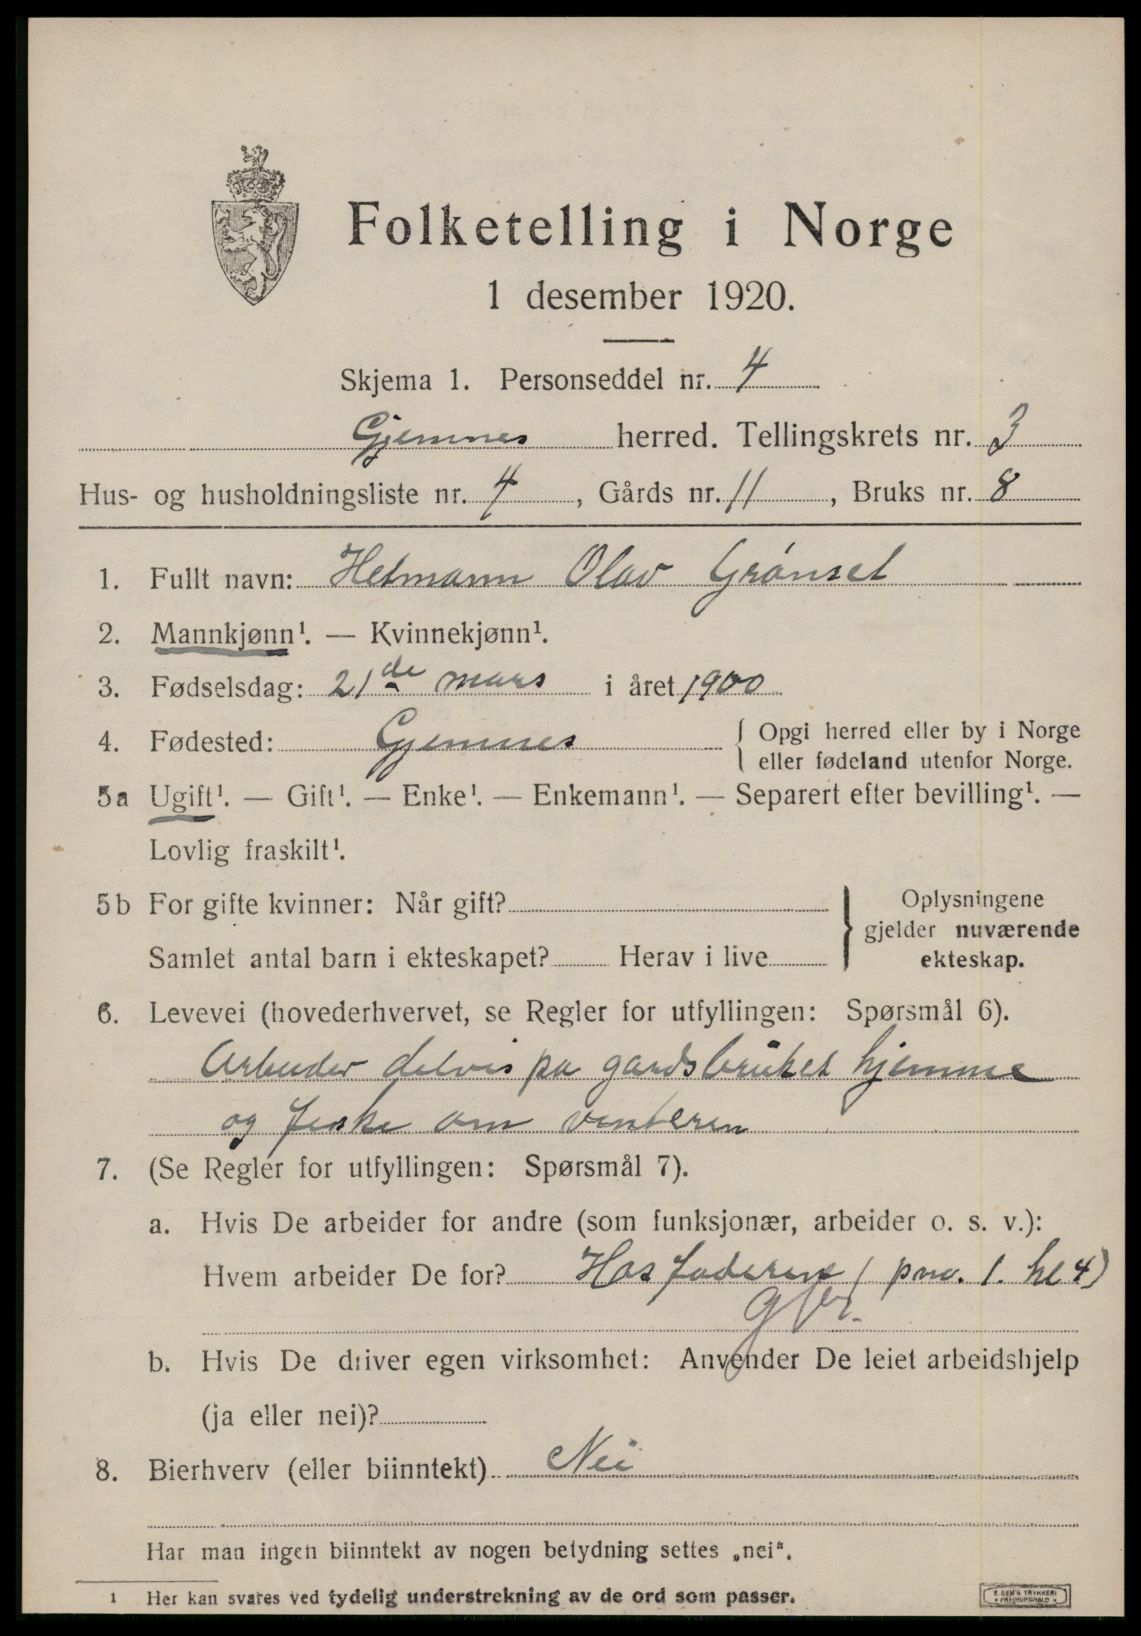 Folketelling i Norge
1 desember 1920.
Skjema 1. Personseddel nr. 4
Gjemnes herred. Tellingskrets nr. 3
Hus- og husholdningsliste nr. 4, Gårds nr. 11, Bruks nr. 8
1. Fullt navn: Hetmann Olav Grønset
2. Mannkjønn¹. — Kvinnekjønn¹.
3. Fødselsdag: 21de mars i året 1900
4. Fødested: Gjemnes { Opgi herred eller by i Norge
eller fødeland utenfor Norge.
5a Ugift¹. — Gift¹. — Enke¹. — Enkemann¹. — Separert efter bevilling¹. —
Lovlig fraskilt¹.
5b For gifte kvinner: Når gift?
Samlet antal barn i ekteskapet? Herav i live
} Oplysningene
gjelder nuværende
ekteskap.
6. Levevei (hovederhvervet, se Regler for utfyllingen: Spørsmål 6).
Arbeider delvis pa gardsbruket hjemme
og fiske om vinteren
7. (Se Regler for utfyllingen: Spørsmål 7).
a. Hvis De arbeider for andre (som funksjonær, arbeider o. s. v.):
Hvem arbeider De for? Hos faderen ( pnr. 1. hl 4)
b. Hvis De driver egen virksomhet: Anvender De leiet arbeidshjelp
(ja eller nei)?
8. Bierhverv (eller biinntekt) Nei
Har man ingen biinntekt av nogen betydning settes „nei“.
¹ Her kan svares ved tydelig understrekning av de ord som passer.
E. SEM'S TRYKKERI
FREDRIKSHALD